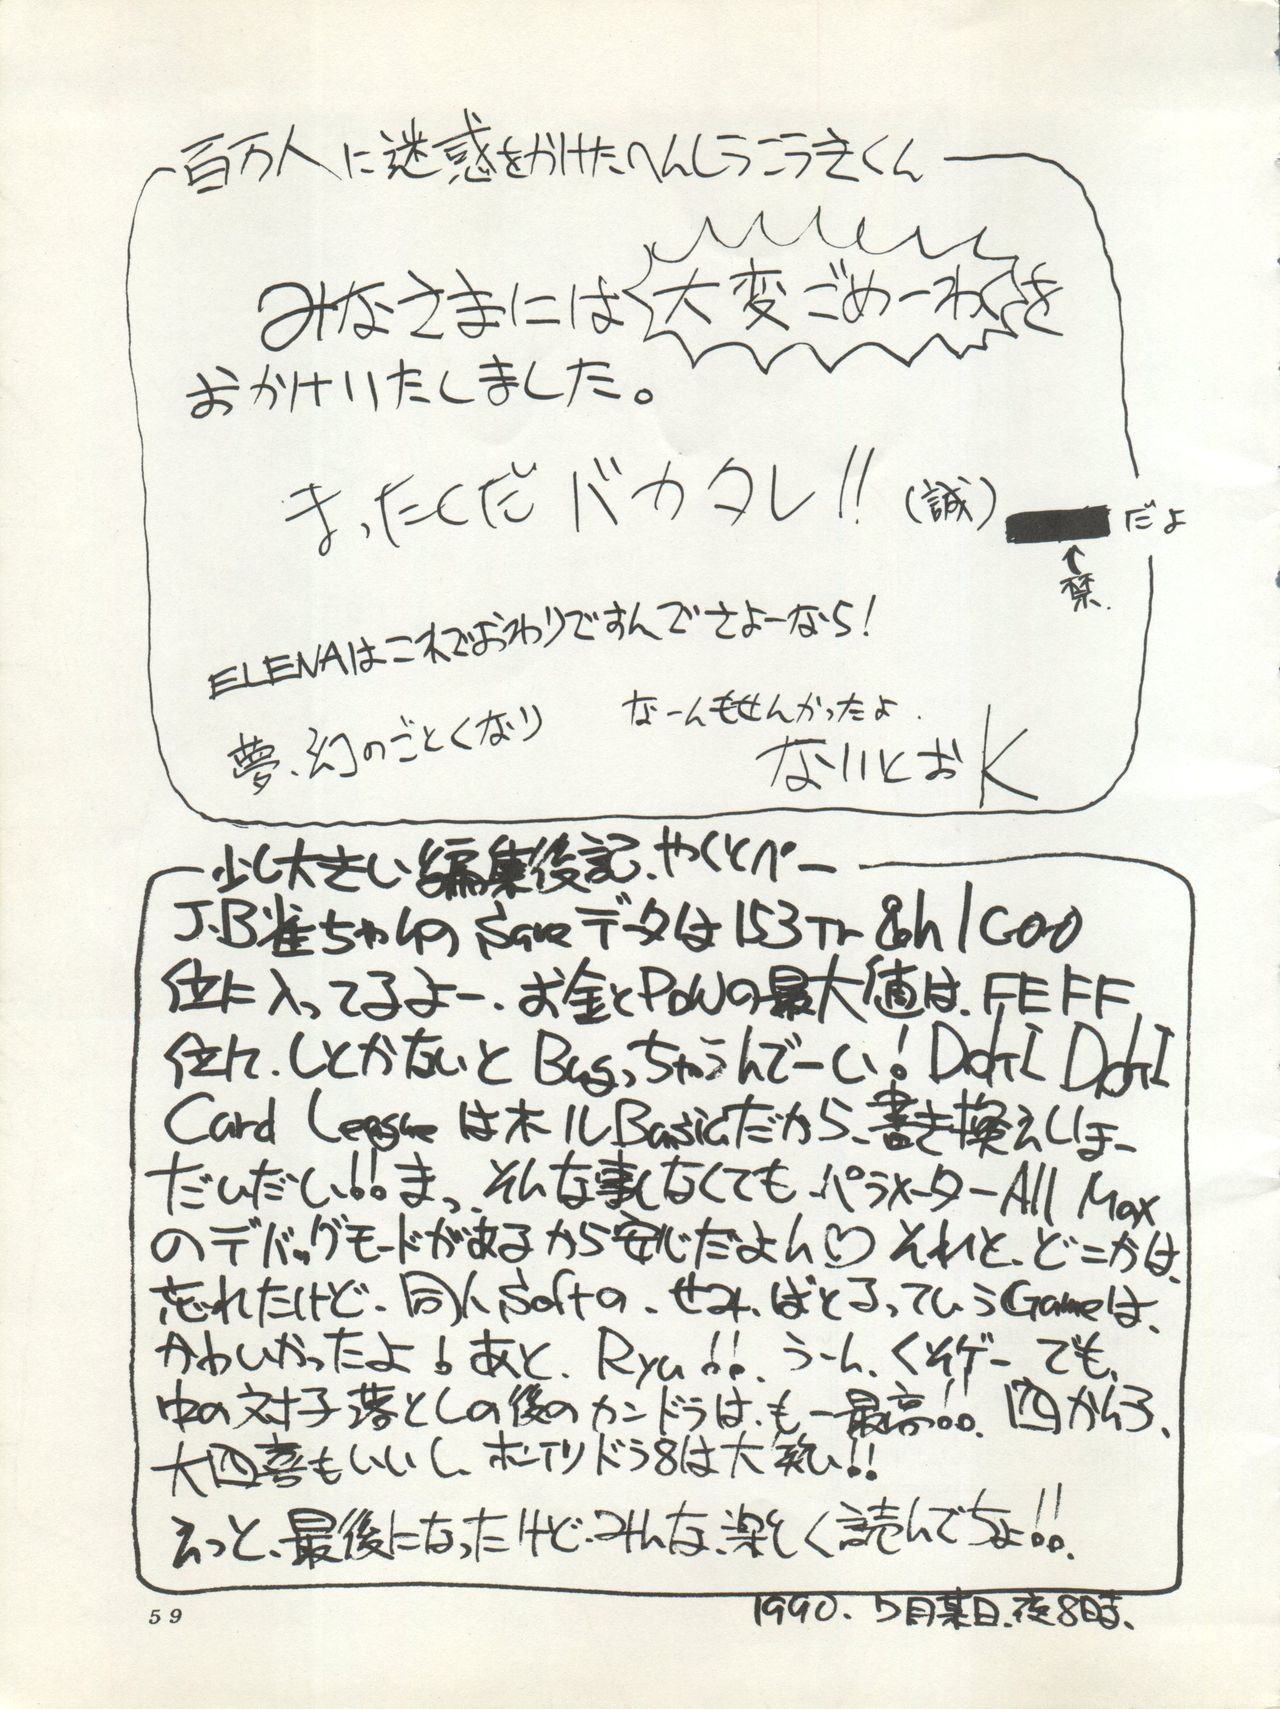 百万人に迷惑をかけたへんしうこうきくん
みなさまには大変ごめーわくを
おかけいたしました。
まったくだバカタレ!! (誠)
だよ
↑
禁.
ELENAはこれでおわりですんでさよーなら!
なーんもせんかったよ.
夢、幻のごとくなり
ないとおK
少し大きい編集後記、やくとぺー
J.B雀ちゃんの SaveデータはI53Tr 8h 1C00
位に入ってるよー、お金とPOWの最大値は、FEFF
位に、しとかないとBugっちゃうんでーい! DokI DokI
Card LeagueはホルBasicだから、書き換えしほー
だいだい!!まっ、そんな事しなくてもパラメーターAll Max
のデバッグモードがあるから安心だよん♡ それと、どこかは、
忘れたけど、同人Softの、せみ、ばとるっていうGameは、
かわいかったよ! あと、Ryu!!、うーん、くそゲー でも、
中の対子落としの後のカンドラは、も一最高!!。四かんつ、
大四喜もいいし、ホーテイリドラ8は大笑い!!
えっと、最後になったけど、みんな、楽しく読んでちょ!!、
1990. 5月某日、夜8時、
59